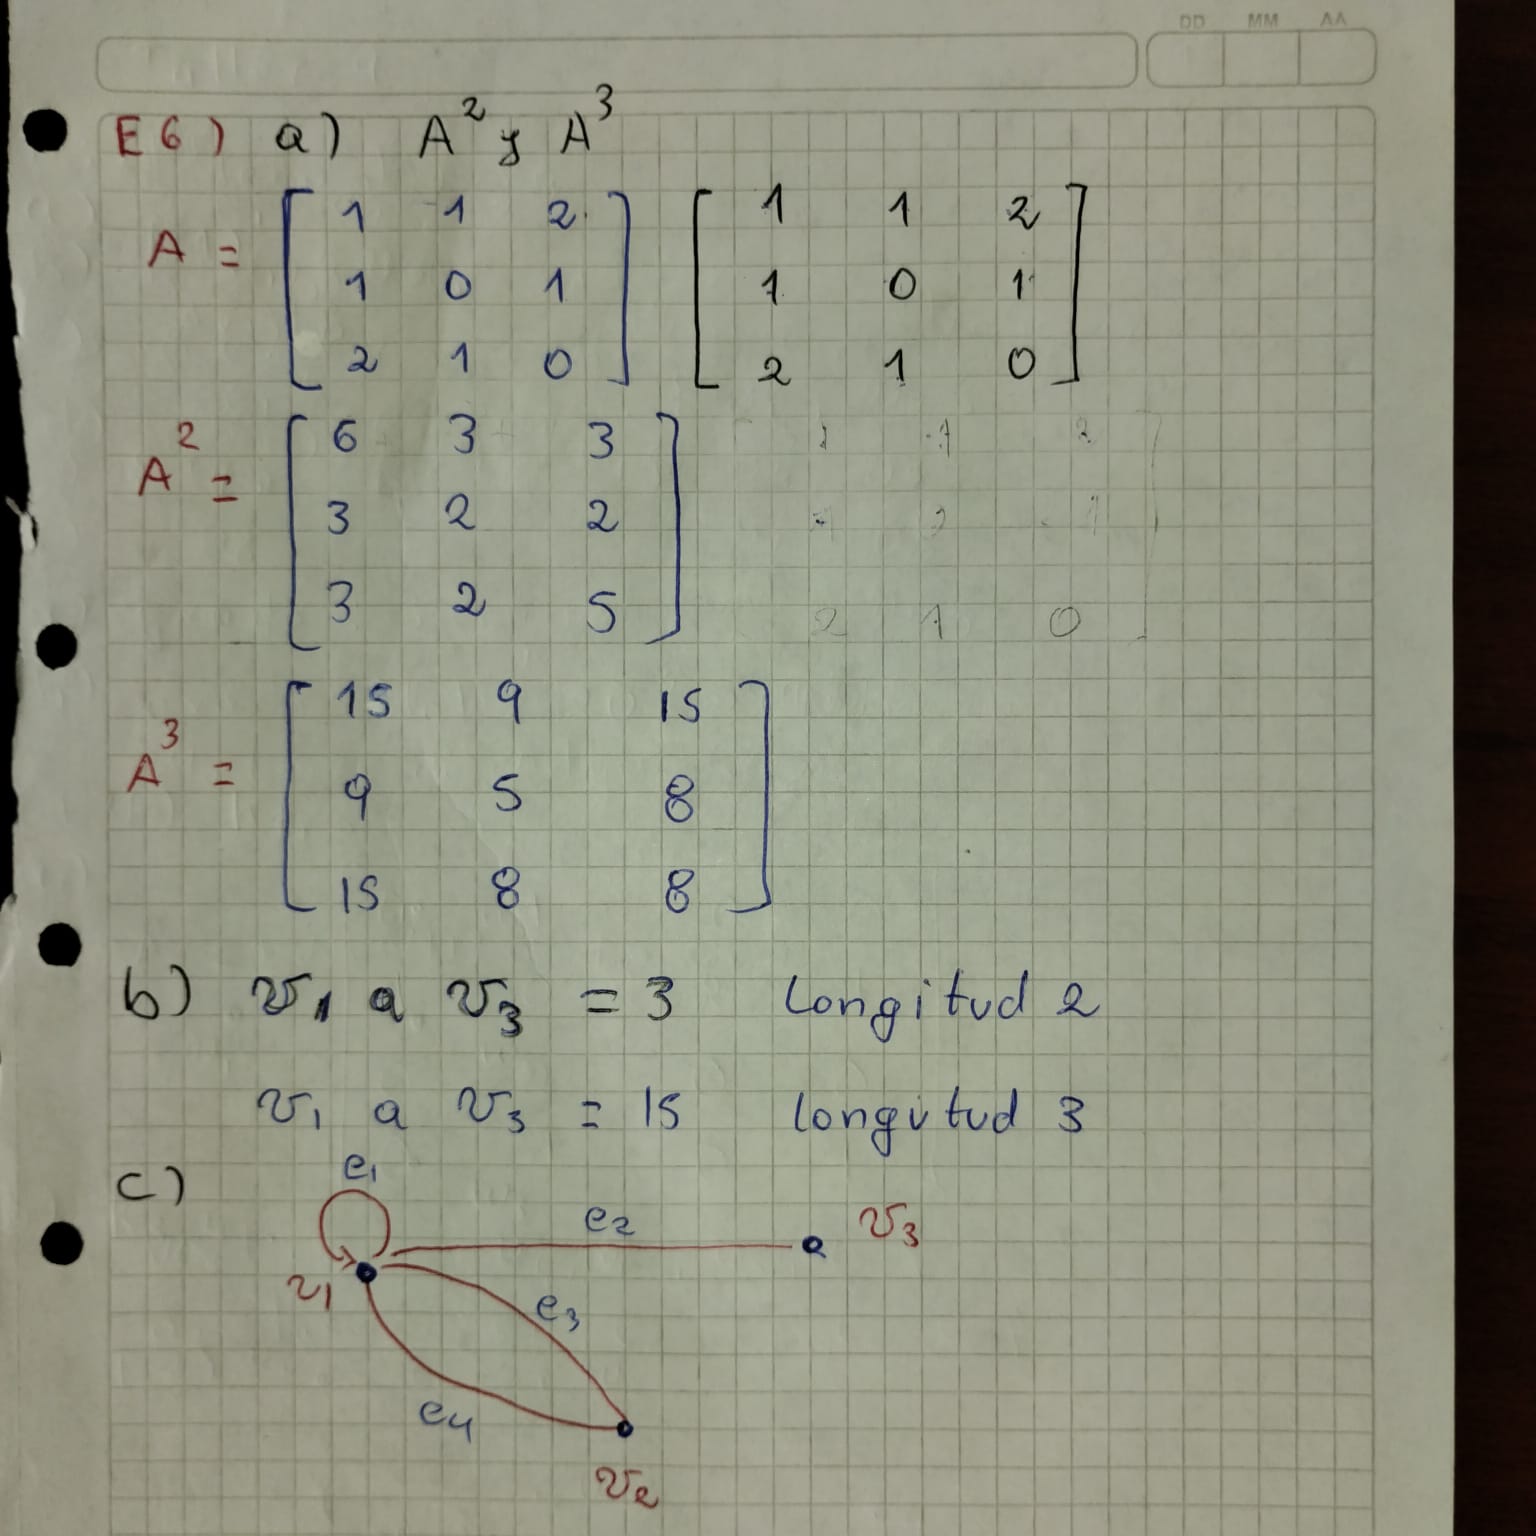 DD MM AA
E6) a) A² y A³
A = [ 1 1 2 ] [ 1 1 2 ]
1 0 1 1 0 1
2 1 0 2 1 0
A² = [ 6 3 3 ]
3 2 2
3 2 5
2 1 0
A³ = [ 15 9 15 ]
9 5 8
15 8 8
b) v₁ a v₃ = 3 Longitud 2
v₁ a v₃ = 15 longitud 3
c) e₁
e₂ v₃
v₁ e₃
e₄
v₂